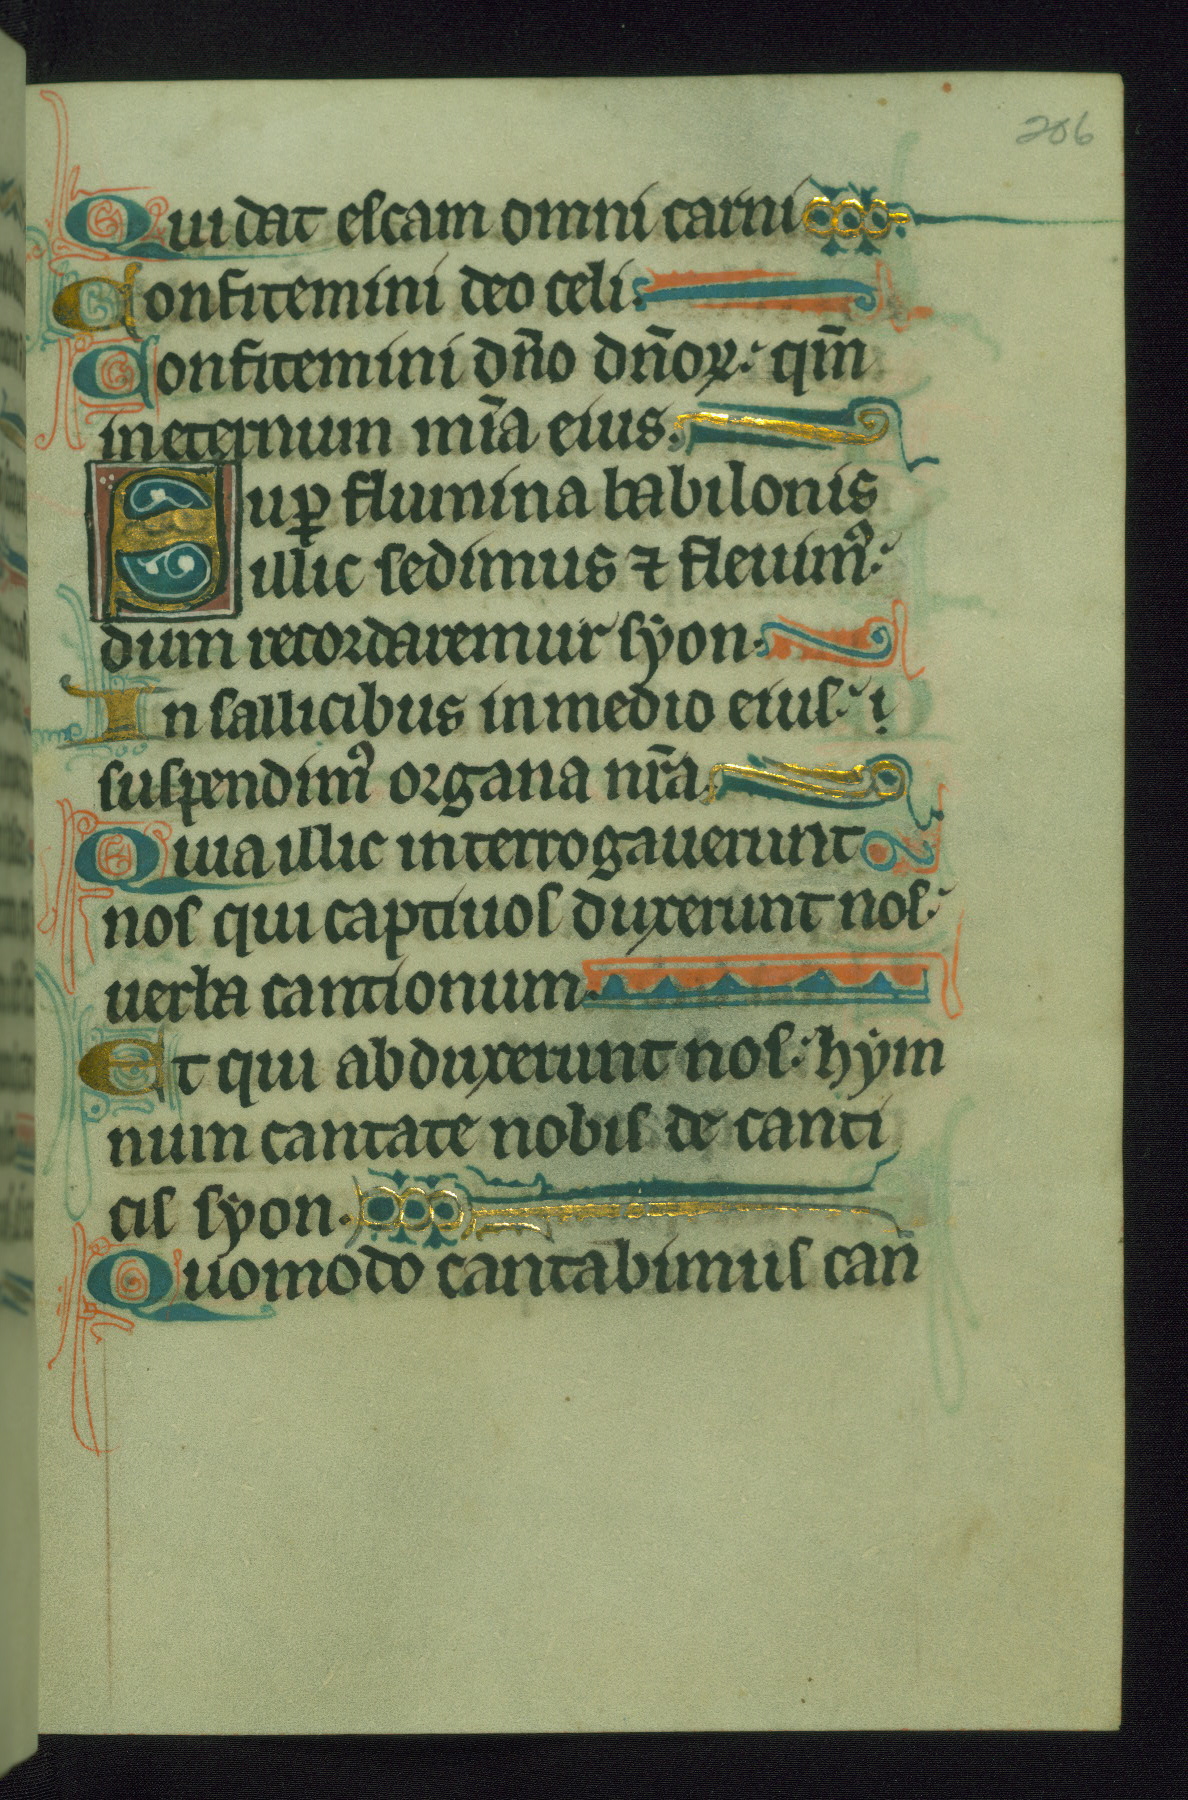 206
Qui dat escam omni carni
Confitemini deo celi.
Confitemini dño dñoꝝ: qm̄
in eternum mīa eius.
Sup̲ flumina babilonis
illic sedimus ⁊ fleuimꝰ:
dum recordaremur syon.
In sallicibus in medio eius: i
suspendimꝰ organa nr̄a.
Quia illic interrogauerunt
nos qui captiuos duxerunt nos:
uerba cantionum.
Et qui abduxerunt nos: hẏm
num cantate nobis de canti
cis syon.
Quomodo cantabimus can